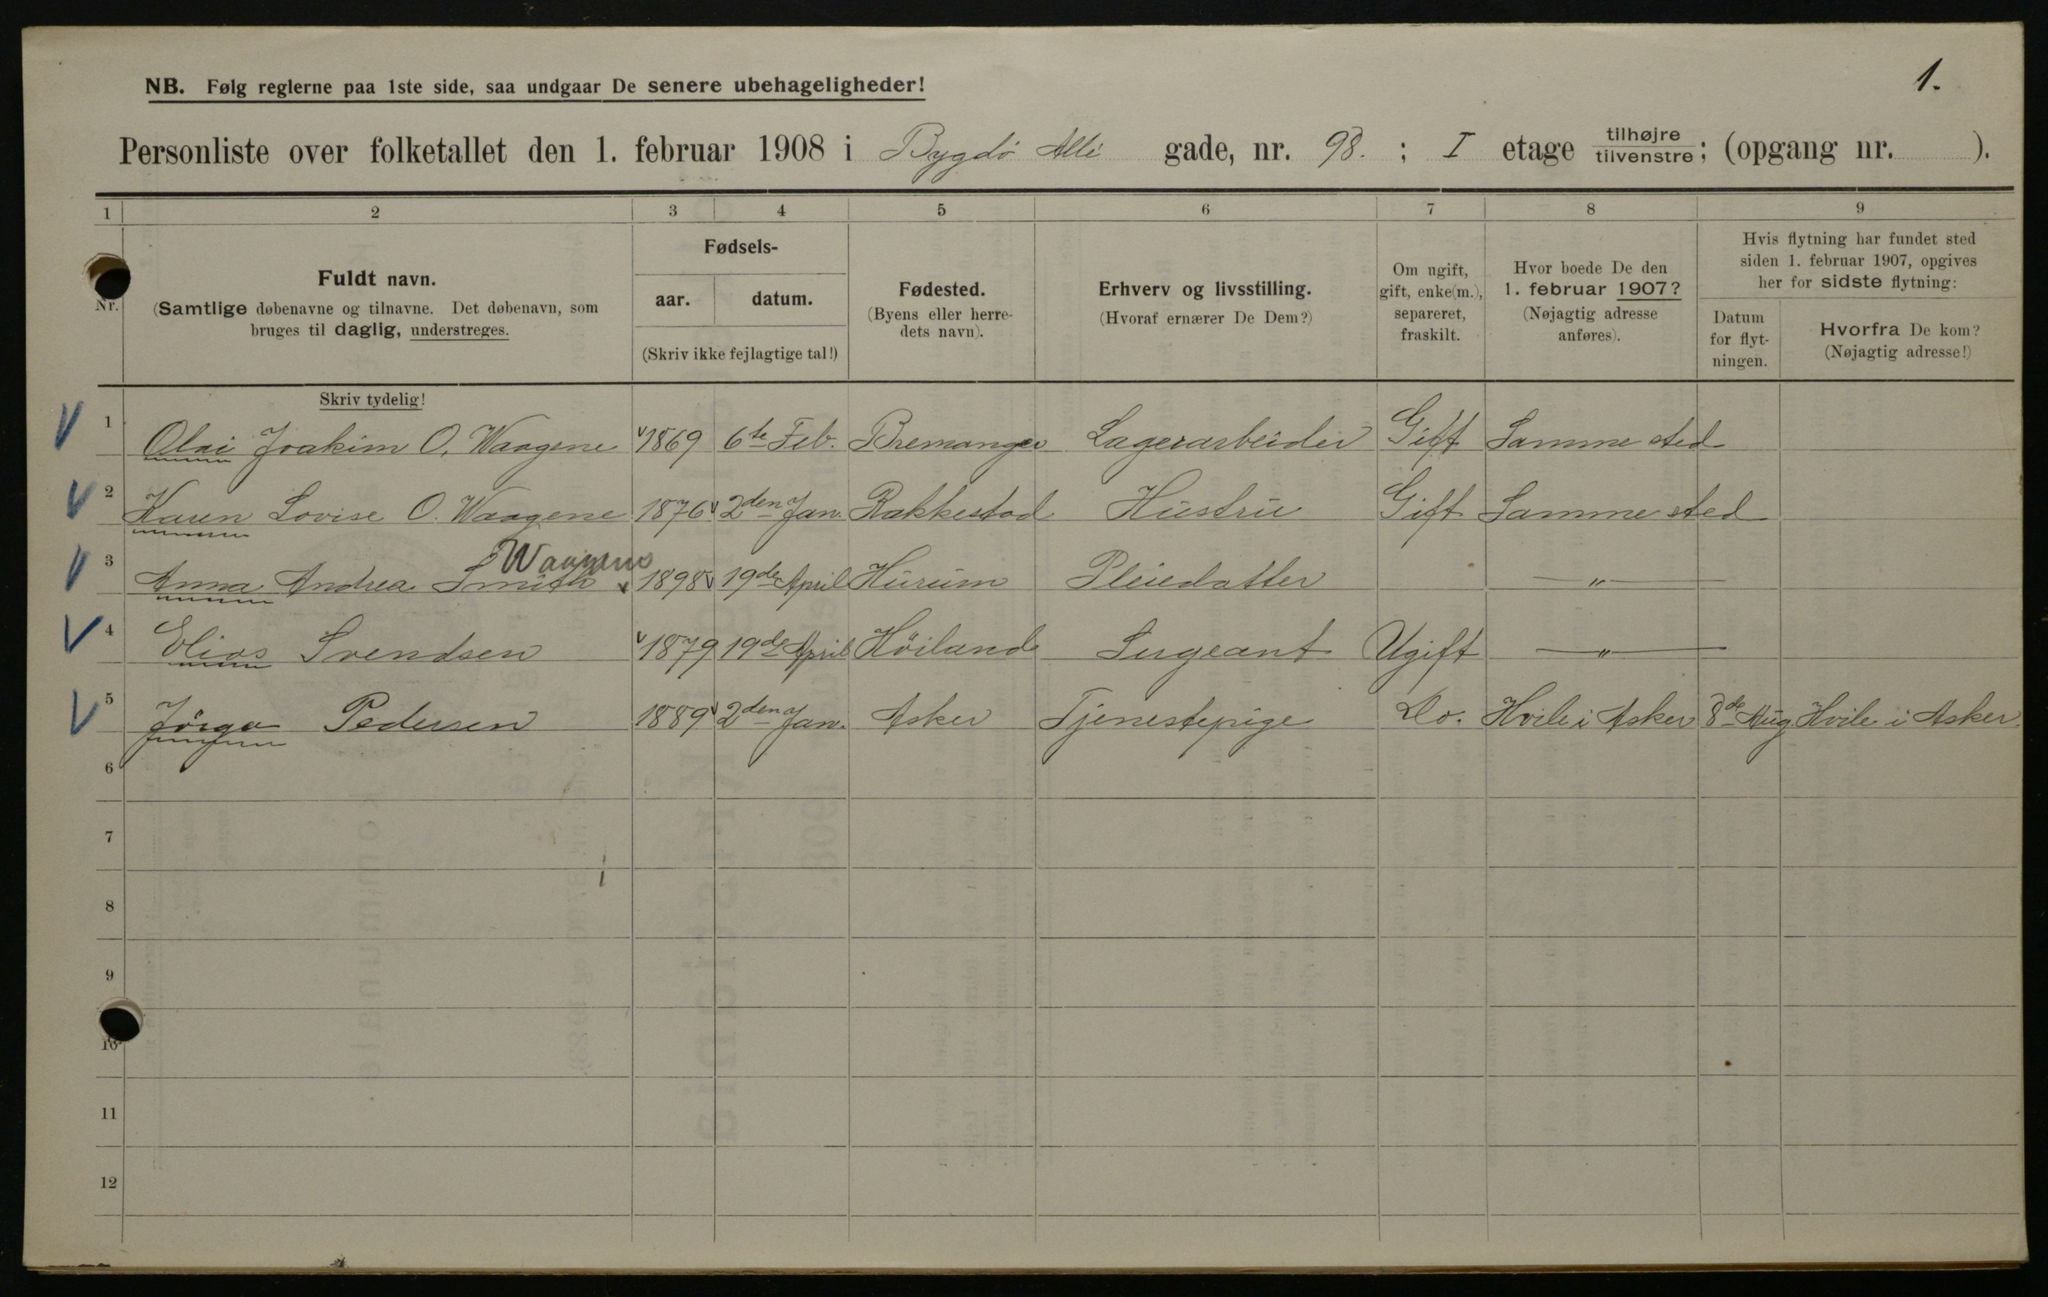 1.
NB. Følg reglerne paa 1ste side, saa undgaar De senere ubehageligheder!
Personliste over folketallet den 1. februar 1908 i Bygdö Allé gade, nr. 98. ; I etage tilhøjre tilvenstre; (opgang nr. ).
1 2 3 4 5 6 7 8 9
Nr.
Fuldt navn.
(Samtlige døbenavne og tilnavne. Det døbenavn, som bruges til daglig, understreges.
Fødsels-
aar. datum.
(Skriv ikke fejlagtige tal!)
Fødested.
(Byens eller herredets navn).
Erhverv og livsstilling.
(Hvoraf ernærer De Dem?)
Om ugift, gift, enke(m.), separeret, fraskilt.
Hvor boede De den 1. februar 1907?
(Nøjagtig adresse anføres).
Hvis flytning har fundet sted siden 1. februar 1907, opgives her for sidste flytning:
Datum for flytningen.
Hvorfra De kom?
(Nøjagtig adresse!)
Skriv tydelig!
1 Olai Joakim O. Waagene 1869 6te Feb. Bremanger Lagerarbeider Gift Samme sted
2 Karen Lovise O. Waagene 1876 2den Jan. Rakkestad Hustru Gift Samme sted
Waagene
3 Anna Andrea Smith 1898 19de April Hurum Pleiedatter — " —
4 Elias Svendsen 1879 19de April Höiland Sergeant Ugift — " —
5 Jörga Pedersen 1889 2den Jan. Asker Tjenestepige Do. Hvile i Asker 8de Aug Hvile i Asker
6
7
8
9
10
11
12